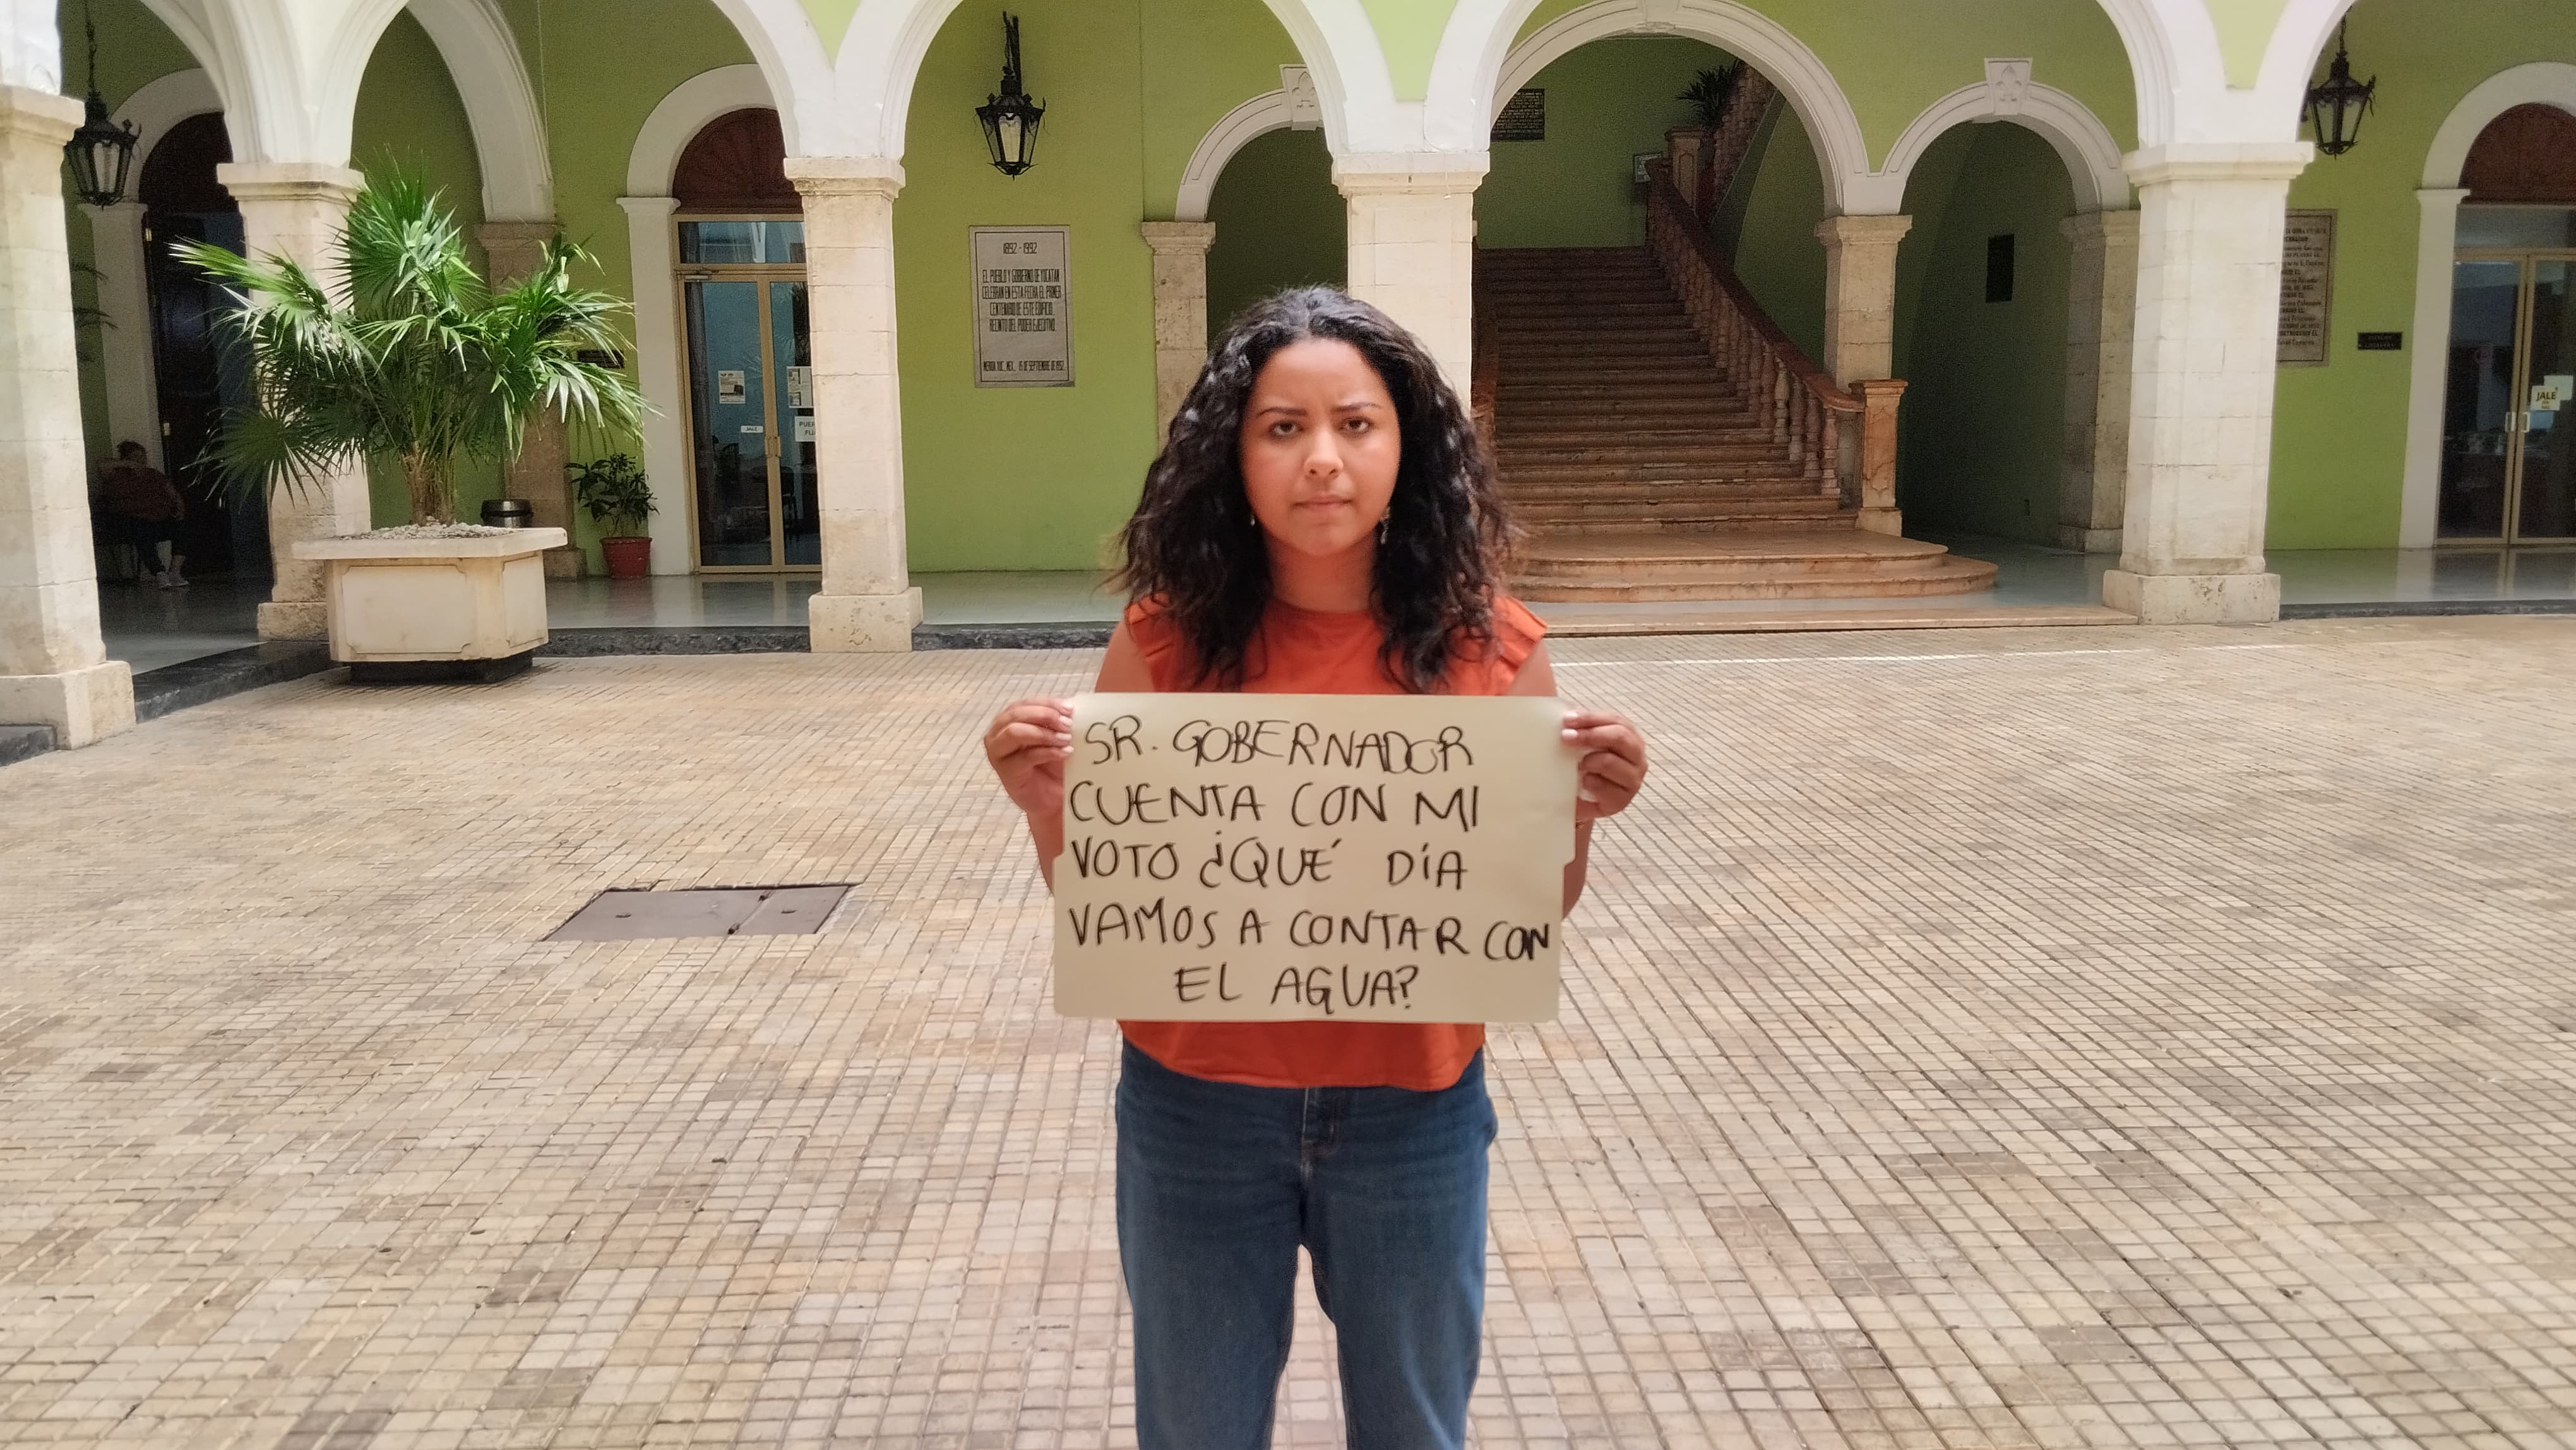 1892 - 1992
EL PUEBLO Y GOBIERNO DE YUCATAN
CELEBRAN EN ESTA FECHA EL PRIMER
CENTENARIO DE ESTE EDIFICIO,
RECINTO DEL PODER EJECUTIVO.
MERIDA YUC., MEX., 15 DE SEPTIEMBRE DE 1992.
JALE
JALE
SR. GOBERNADOR
CUENTA CON MI
VOTO ¿QUÉ DÍA
VAMOS A CONTAR CON
EL AGUA?